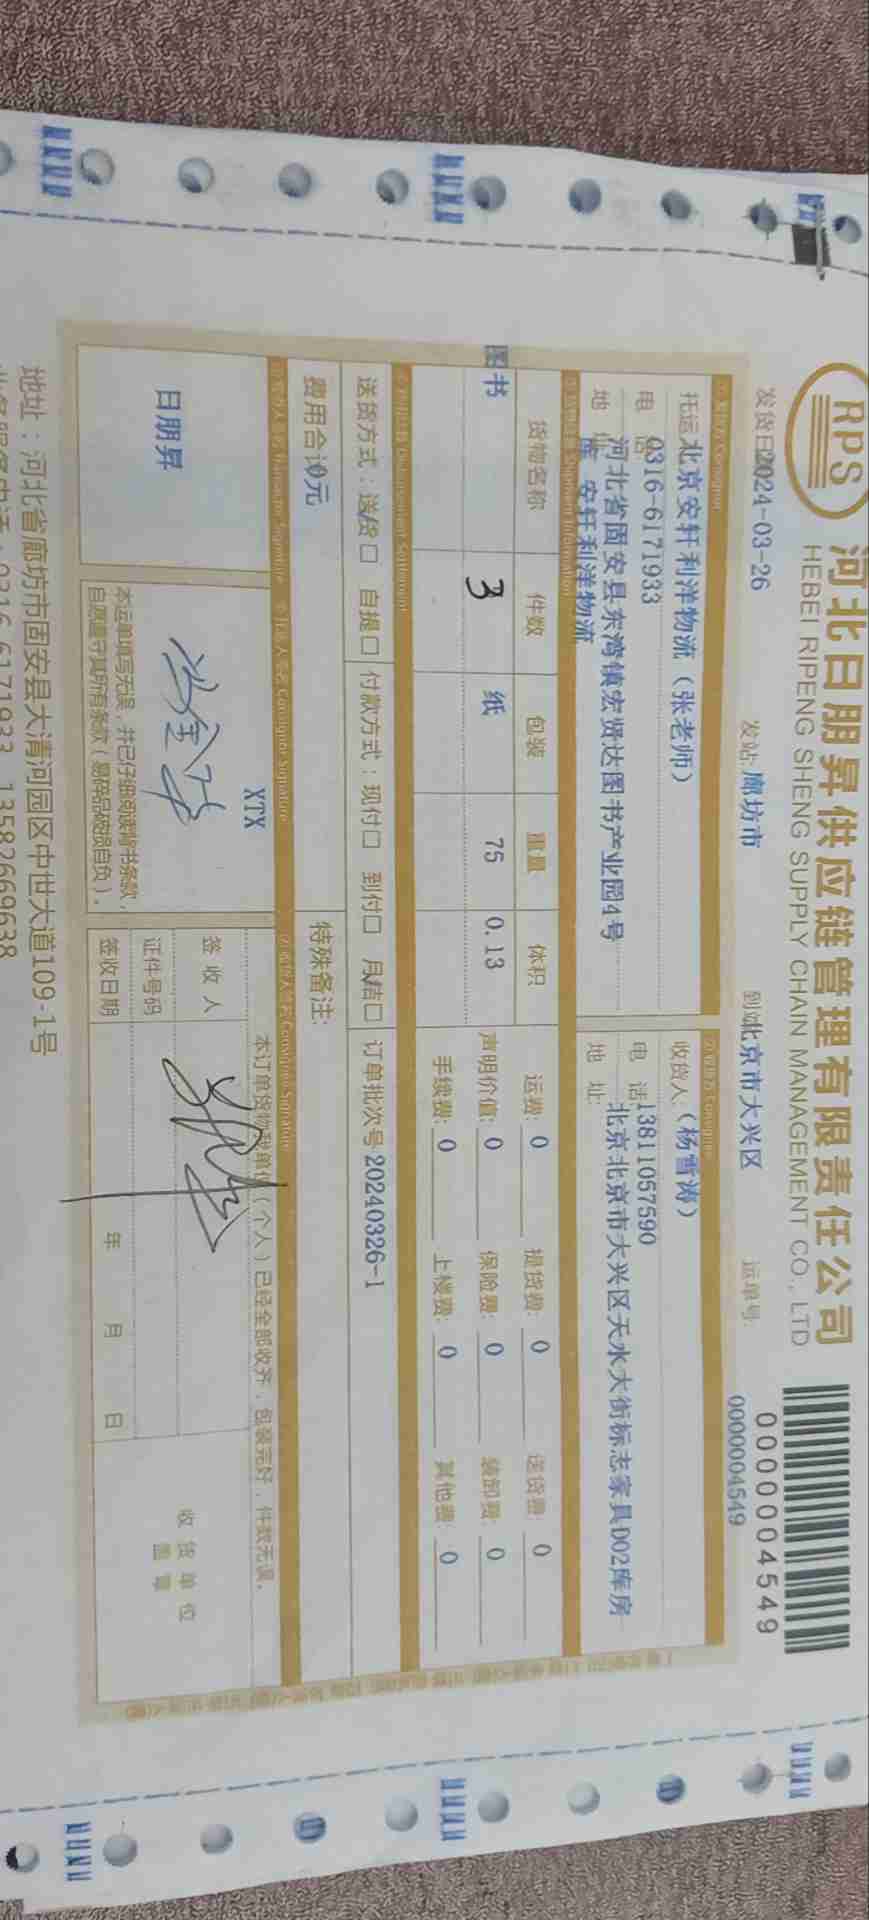 RPS
河北日朋昇供应链管理有限责任公司
HEBEI RIPENG SHENG SUPPLY CHAIN MANAGEMENT CO., LTD
0000004549
发货日 2024-03-26 发站: 廊坊市 到站 北京市大兴区 运单号: 0000004549
托运 北京安轩利洋物流（张老师）
电 话 0316-6171933
地 址 河北省固安县东湾镇宏贤达图书产业园4号
库 安轩利洋物流
收货人: （杨雪涛）
电 话: 13811057590
地 址: 北京北京市大兴区天水大街标志家具D02库房
货物名称 件数 包装 重量 体积
图书 3 纸 75 0.13
运费: 0 提货费: 0 送货费: 0
声明价值: 0 保险费: 0 装卸费: 0
手续费: 0 上楼费: 0 其他费: 0
送货方式：送货□ 自提□ 付款方式：现付□ 到付□ 月结□ 订单批次号 20240326-1
费用合计 0元 特殊备注:
日朋昇
XTX
本运单填写无误，并已仔细阅读背书条款，
自愿遵守其所有条款（易碎品破损自负）。
本订单货物我单位（个人）已经全部收齐，包装完好，件数无误。
签收人
证件号码
签收日期 年 月 日
收货单位
盖章
地址：河北省廊坊市固安县大清河园区中世大道109-1号
0316-6171933 13582669638